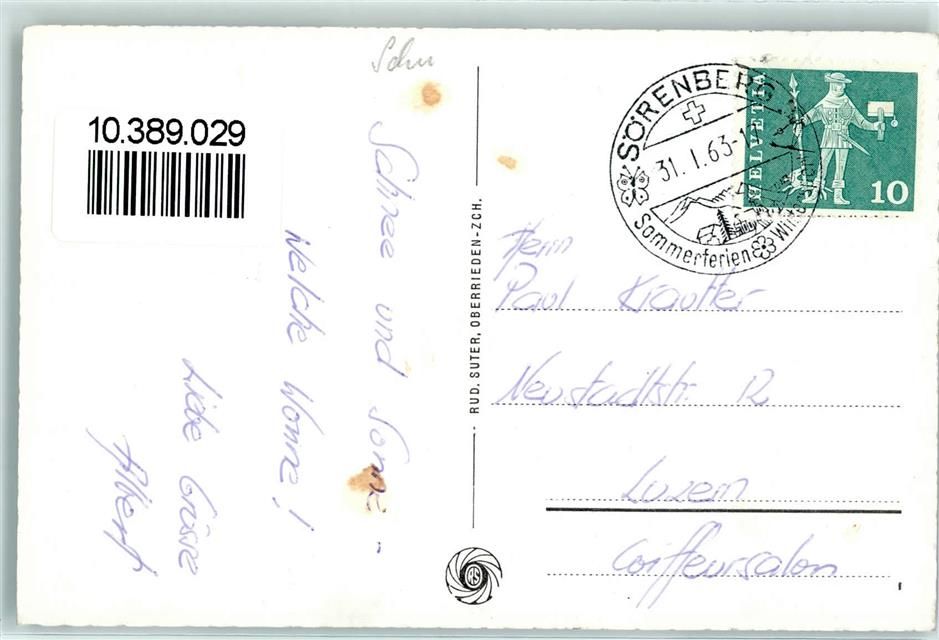 Schn
10.389.029
Schnee und Sonne -
Welche Wonne!
Liebe Grüsse
Albert
RUD. SUTER, OBERRIEDEN-ZCH.
RS
SÖRENBERG
31. 1. 63-1
Sommerferien
HELVETIA
10
Herrn
Paul Krautter
Neustadtstr. 12
Luzern
Coiffeursalon